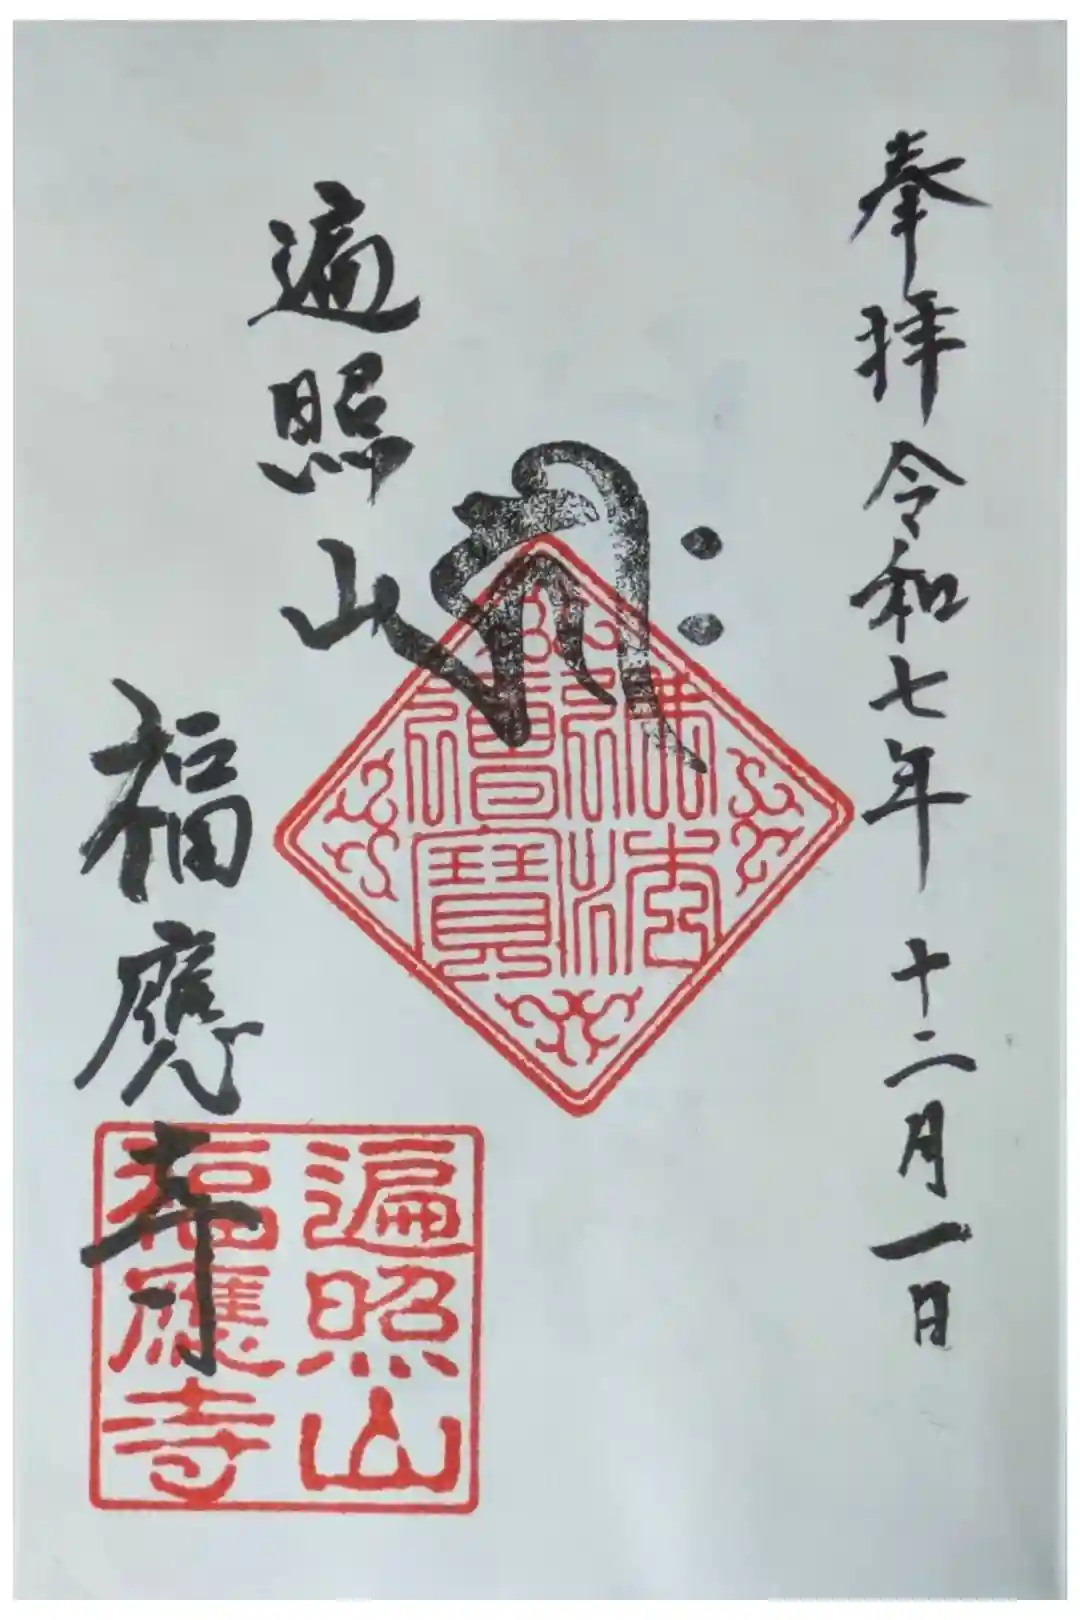 奉拝 令和七年 十二月一日
佛法僧寳
遍照山
福應寺
遍照山
福應寺